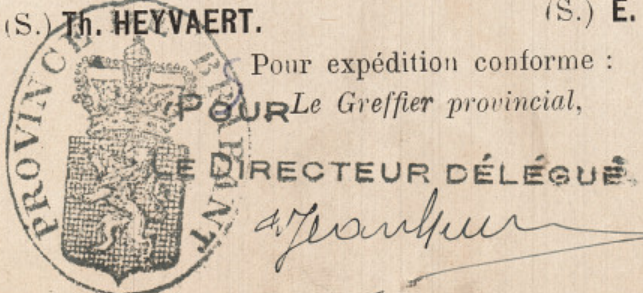 (S.) Th. HEYVAERT. (S.) E.
Pour expédition conforme :
POUR Le Greffier provincial,
LE DIRECTEUR DÉLÉGUÉ
PROVINCE BRABANT